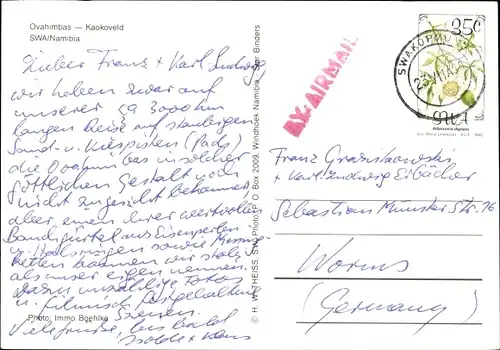 Ovahimbas — Kaokoveld
SWA/Namibia
Lieber Franz + Karl Ludwig,
wir haben zwar auf
unserer ca 3000 km
langen Reise auf staubigen
Sand- u. Kiespisten (Pads)
die Ovahimbas in solcher
göttlichen Gestalt noch
nicht zu gesicht bekommen,
aber einen ihrer wertvollen
Bandgürtel aus Eisenperlen
u. sowie Messing-
ketten können wir stolz
als unser eigen nennen.
Dazu unzählige Fotos
u. filmisch festgehaltene
Szenen.
Photo: Immo Boehlke
Viele Grüße, bis bald
Isolde + Hans
© H. W. THEISS, SWA Photo, P. O. Box 2009, Windhoek Namibia, Binders
BY AIRMAIL
SWAKOPMUND
35c
SWA
Franz
+ Karl Ludwig Eibächer
Sebastian Münster Str. 16
Worms
(Germany)